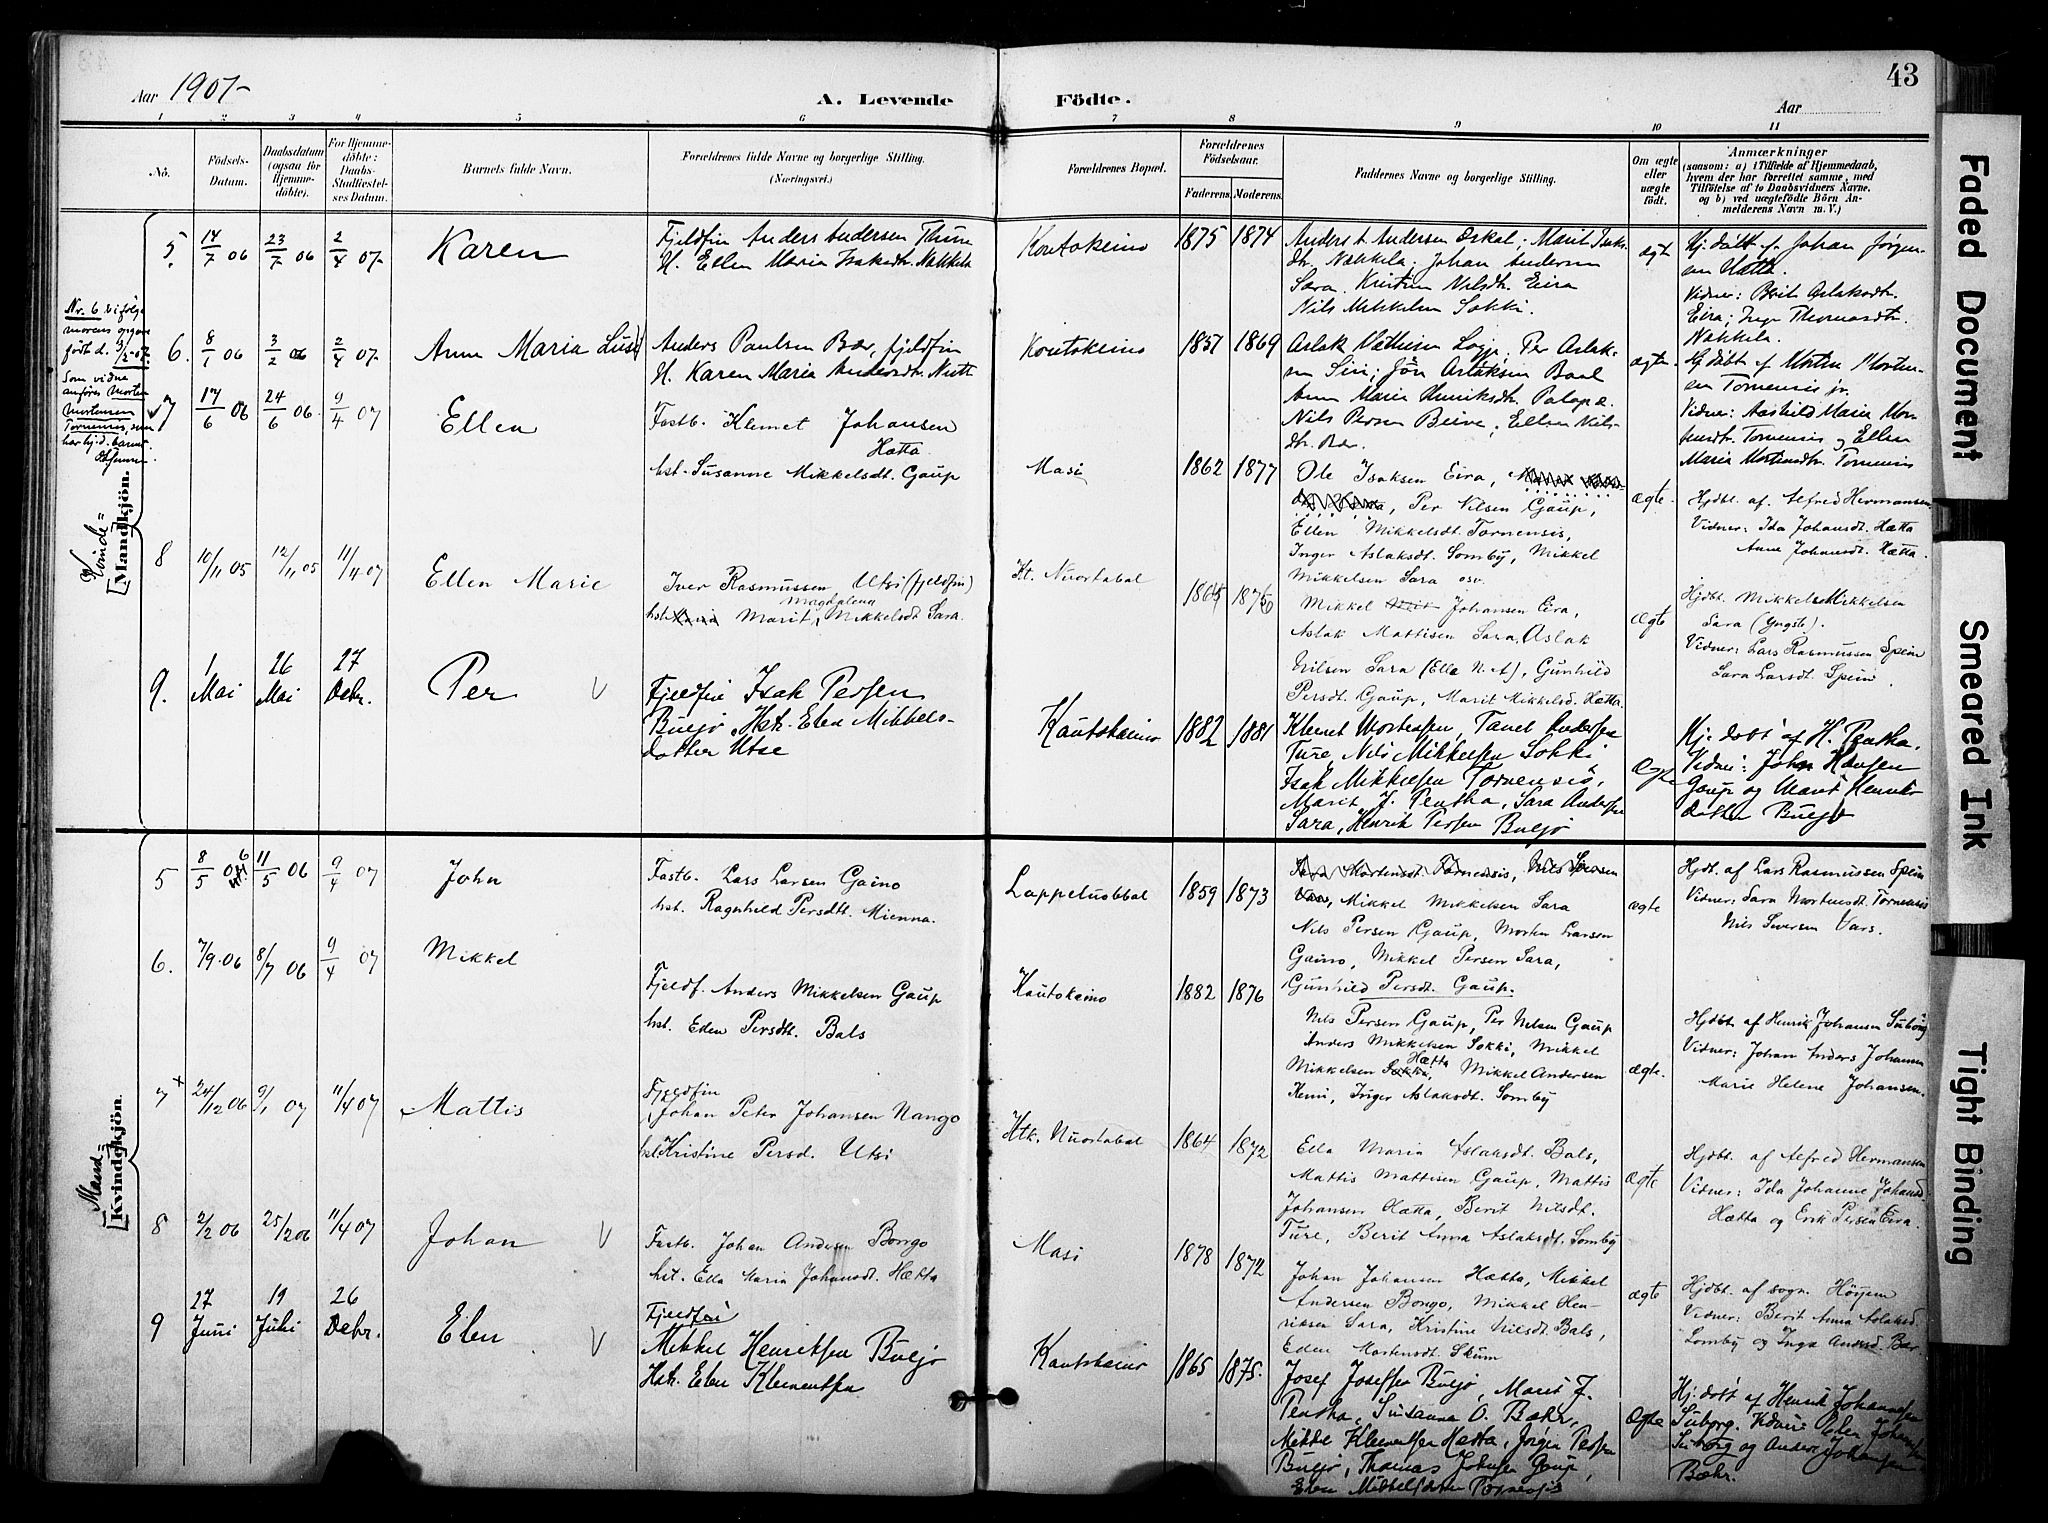 43
Aar 1907-
A. Levende Födte.
Aar
1 2 3 4 5 6 7 8 9 10 11
No.
Födsels-Datum.
Daabsdatum (ogsaa for Hjemme-döbte).
For Hjemme-döbte: Daabs-Stadfæstel-ses Datum.
Barnets fulde Navn.
Forældrenes fulde Navne og borgerlige Stilling.
(Næringsvei.)
Forældrenes Bopæl.
Forældrenes Födselsaar.
Faderens. Moderens.
Faddernes Navne og borgerlige Stilling.
Om ægte eller uægte födt.
Anmærkninger
(saasom: a) i Tilfælde af Hjemmedaab,
hvem der har forrettet samme, med
Tilföielse af to Daabsvidners Navne.
og b) ved uægtefödte Börn An-
melderens Navn m. V.)
Kvinde=
Mandkjön.
Nr. 6 bifölge
morens opgave
födt d. 3/2-07.
Som vidne
anföres Morten
Mortensen
Tornensis, som
har hjd. barnet.
5. 14/7 06 23/7 06 2/4 07-
Karen
Fjeldfin Anders Andersen Thure
H. Ellen Maria Isaksdtr. Nakkela
Koutokeino
1875 1874
Anders A. Andersen Oskal; Marit Isaks-
dtr. Nakkela. Johan Andersen
Sara. Kristine Nilsdtr. Eira
Nils Mikkelsen Sokki.
ægte
Hj. döbt af Johan Jörgen-
sen Hætta.
Vidner: Berit Aslaksdtr.
Eira; Inga Thomasdtr.
Nakkela.
6. 8/1 06 3/2 06 2/4 07.
Anna Maria
Anders Paulsen Bær, fjeldfin
H. Karen Maria Andersdtr. Nutti
Koutokeino
1857 1869
Aslak Mathisen Logje, Per Aslak-
sen Siri; Jön Aslaksen Baal
Anna Maria Henriksdtr. Palopæ.
Nils Persen Beive, Ellen Nils-
dtr. Bær.
ægte
Hj döbt af Morten Morten-
sen Tornensis jr.
Vidner: Aashild Maria Mor-
tensdtr. Tornensis og Ellen
Maria Mortensdtr. Tornensis
7 17/6 06 24/6 06. 9/4 07
Ellen
Fastb. Klemet Johansen
Hætta
hst. Susanne Mikkelsdt. Gaup
Masi
1862 1877
Ole Isaksen Eira,
Per Nilsen Gaup,
Ellen Mikkelsdt. Tornensis,
Inger Aslaksdt. Somby, Mikkel
Mikkelsen Sara osv.
ægte.
Hjdbt. af. Alfred Hermansen
Vidner: Ida Johansdt. Hætta
Anne Johansdt. Hætta.
8 10/11 05 12/11 05 11/4 07
Ellen Marie
Iver Rasmussen Utsi (fjeldfin)
Magdalena
hst. Marit, Mikkelsdt Sara.
Kt. Nuortabal
1865 1876
Mikkel Johansen Eira,
Aslak Mattisen Sara, Aslak
Nilsen Sara (Ella N. A), Gunhild
Persdt. Gaup, Marit Mikkelsd. Hætta.
ægte
Hjdbt. Mikkel Mikkelsen
Sara (Yngste).
Vidner: Lars Rasmussen Spein
Sara Larsdt. Spein.
9. 1 Mai 26 Mai 27 Debr.
Per V
Fjeldfin Isak Persen
Buljo, Hst. Elen Mikkels-
datter Utse
Kautokeino
1882 1881
Klemet Mortensen, Tanel Andersen
Ture, Nils Mikkelsen Sokki
Isak Mikkelsen Tornensis,
Marit J. Pentha, Sara Andersen
Sara, Henrik Persen Buljo
Ægte
Hj. döbt af H. Pentha.
Vidner: John Hansen
Gaup og Marit Henriks
datter Buljo
Mand=
Kvindekjön.
5 8/5 06 11/5 06 9/4 07
John
Fastb. Lars Larsen Gaino
hst. Ragnhild Persdtt. Mienna.
Lappeluobbal
1859 1873
Sara Mortensdt Tornensis, Nils Siversen
Vars, Mikkel Mikkelsen Sara
Nils Persen Gaup, Morten Larsen
Gaino, Mikkel Persen Sara,
Gunhild Persdt. Gaup.
ægte
Hjdt. af Lars Rasmussen Spein
Vidner: Sara Mortensdt. Tornensis
Nils Siversen Vars.
6. 7/9 06 8/7 06 9/4 07
Mikkel
Fjeldf. Anders Mikkelsen Gaup
hst. Ellen Persdtt. Bals
Kautokeino
1882 1876
Nils Persen Gaup, Per Nilsen Gaup
Anders Mikkelsen Sokki, Mikkel
Hætta
Mikkelsen Sokki, Mikkel Andersen
Kemi, Inger Aslaksdt. Somby
ægte.
Hjdbt af Henrik Johansen Suborg
Vidner: Johan Anders Johansen
Marie Helene Johansen.
7 x 24/12 06 9/1 07 11/4 07
Mattis
Fjeldfin
Johan Peter Johansen Nango
hst Kristine Persd. Utsi
Ktk. Nuortabal
1864 1872
Ella Maria Aslaksdt. Bals,
Mattis Mattisen Gaup, Mattis
Johansen Hætta, Berit Nilsdt.
Ture, Berit Anna Aslaksdt. Somby
ægte
Hjdbt. af Alfred Hermansen
Vidner: Ida Johanne Johansd.
Hætta og Erik Persen Eira.
8 2/2 06 25/2 06 11/4 07
Johan V
Fastb. Johan Andersen Bongo
hst. Ella Maria Johansdt. Hætta
Masi
1878 1872
Johan Johansen Hætta, Mikkel
Andersen Bongo, Mikkel Hen-
riksen Sara, Kristine Nilsdt. Bals,
Ellen Mortensdt. Skum
ægte
Hjdbt. af sogn. Höyem
Vidner: Berit Anna Aslaksd.
Somby og Inga Andersd. Bær.
9 27 Juni 19 Juli 26 Debr.
Elen V
Fjeldfin
Mikkel Henriksen Buljo
Hst. Elen Klemetsen
Kautokeino
1865 1875.
Josef Josefsen Buljo, Marit J.
Pentha, Susanna O. Bæhr,
Mikkel Klemetsen Hætta, Jörgen Persen
Buljo, Thomas Johnsen Gaup,
Elen Mikkelsdatter Tornensis
Ægte
Hj. döbt af Henrik Johannesen
Suborg. Vidner Elen Johansen
Suborg og Anders Johansen
Bæhr.
Faded Document
Smeared Ink
Tight Binding